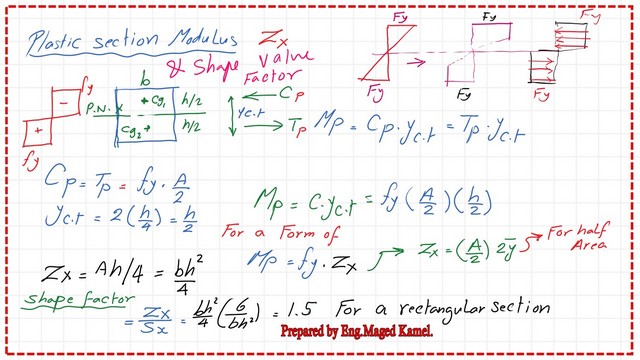 Plastic section Modulus Zx value
& Shape Factor
Fy Fy Fy
Fy Fy Fy
b
fy
-
+
fy
P.N. x
+ cg1
cg2 +
h/2
h/2
Cp
yc.t
Tp
Mp = Cp.yc.t = Tp.yc.t
Cp = Tp = fy . A/2
yc.t = 2(h/4) = h/2
Mp = C.yc.t = fy (A/2)(h/2)
For a Form of
Mp = fy . Zx
Zx = (A/2) 2ȳ
For half Area
Zx = Ah/4 = bh²/4
shape factor
= Zx/Sx = bh²/4 (6/bh²) = 1.5 For a rectangular section
Prepared by Eng.Maged Kamel.